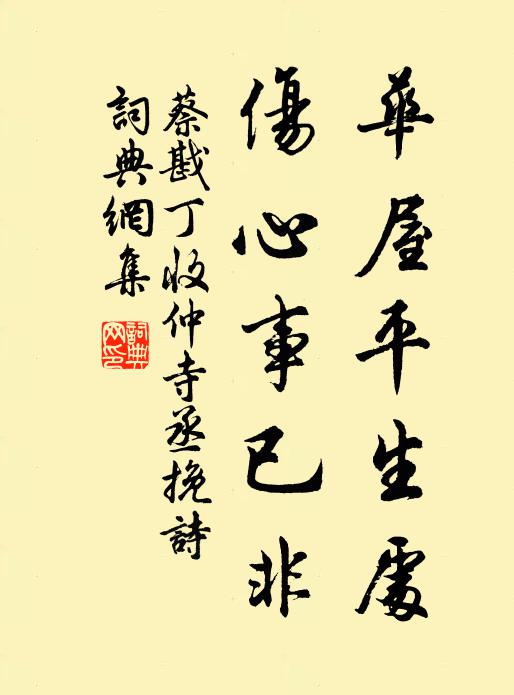 華屋平生處
傷心事已非
蔡戡丁收仲寺丞挽詩
詞典網集
詞典網印